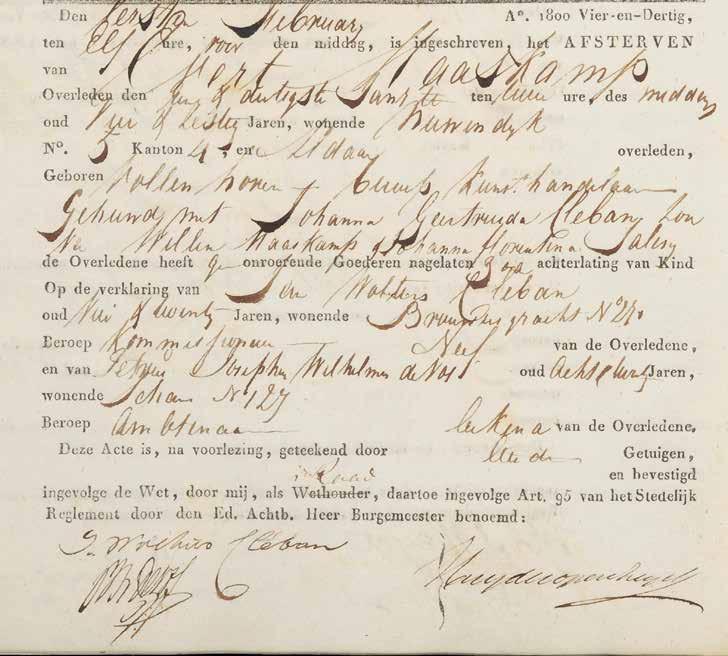 Den eersten Februarij Aº. 1800 Vier-en-Dertig,
ten Elf ure, voor den middag, is ingeschreven, het AFSTERVEN
van Evert Maaskamp
Overleden den een & dertigste Jan ten ure, des middags
oud Vier & zestig Jaren, wonende Nieuwendyk
Nº. 5 Kanton 4, en aldaar overleden,
Geboren Vollenhoven beroep Kunsthandelaar
Gehuwd met Johanna Geertruida Cleban, Zoon
Van Willem Maaskamp & Johanna Florentina
de Overledene heeft onroerende Goederen nagelaten achterlating van Kind
Op de verklaring van Jan Wolters Cleban
oud Vier & twintig Jaren, wonende Brouwersgracht Nº
Beroep Kommissionair Neef van de Overledene,
en van Petrus Josephus Wilhelmus de Vos oud Acht & twintig Jaren,
wonende Schans Nº 127
Beroep Ambtenaar bekend van de Overledene,
Deze Acte is, na voorlezing, geteekend door beide Getuigen,
in Raad en bevestigd
ingevolge de Wet, door mij, als Wethouder, daartoe ingevolge Art. 95 van het Stedelijk
Reglement door den Ed. Achtb. Heer Burgemeester benoemd:
J. Wolters Cleban